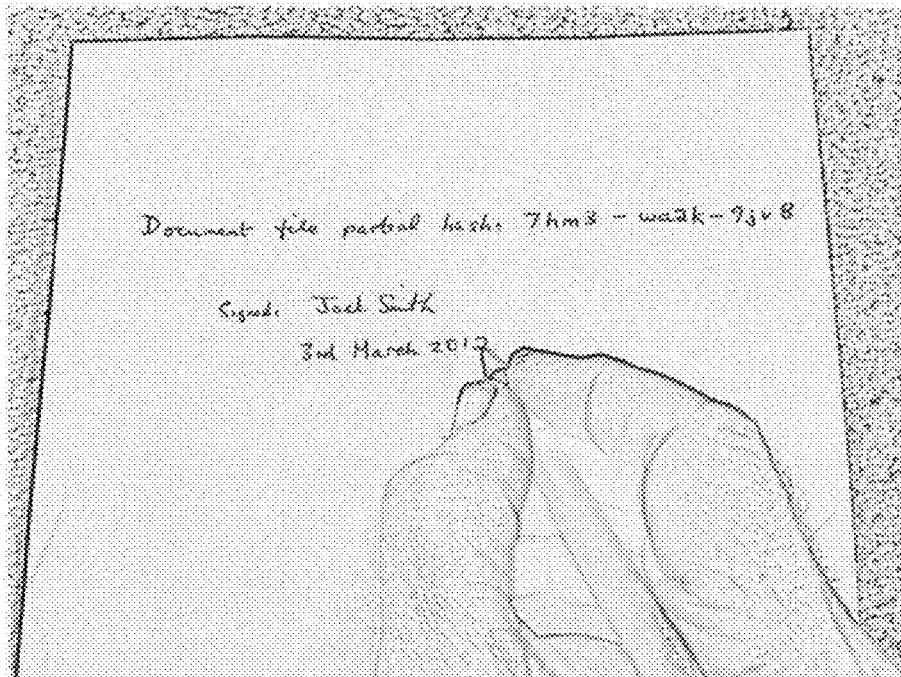 Document file partial hash: 7hm3 - wa2k - 9jv8
Signed: Joel Smith
3rd March 2012